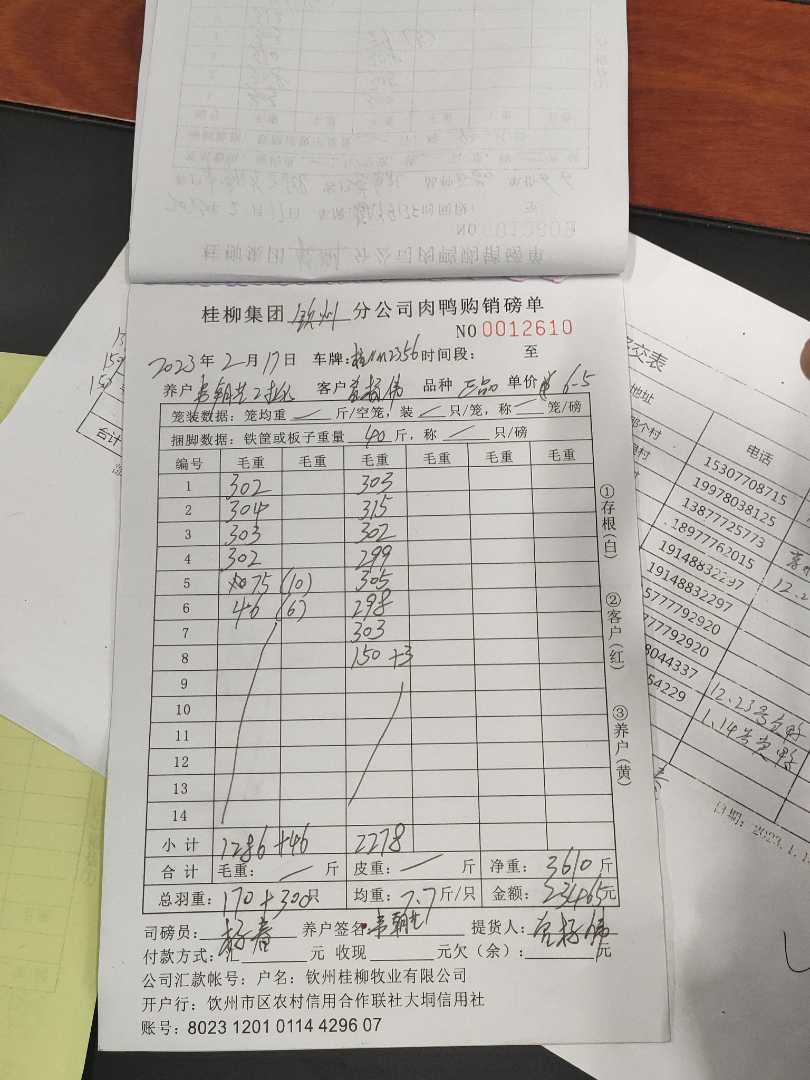 桂柳集团 钦州 分公司肉鸭购销磅单
NO 0012610
2023年2月17日 车牌: 2356 时间段: 至
养户 韦朝兰 客户 品种 正品 单价 6-5
笼装数据: 笼均重 斤/空笼, 装 只/笼, 称 笼/磅
捆脚数据: 铁筐或板子重量 40 斤, 称 只/磅
编号 毛重 毛重 毛重 毛重 毛重 毛重
1 302 303
2 304 315
3 303 302
4 302 299
5 75 (10) 305
6 46 (6) 298
7 303
8 150 +3
9
10
11
12
13
14
小计 1286+46 2278
合计 毛重: 斤 皮重: 斤 净重: 3610 斤
总羽重: 170+300只 均重: 7.7斤/只 金额: 23465元
司磅员: 养户签名: 韦朝兰 提货人:
付款方式: 汇 元 收现 元欠(余): 元
公司汇款帐号: 户名: 钦州桂柳牧业有限公司
开户行: 钦州市区农村信用合作联社大垌信用社
账号: 8023 1201 0114 4296 07
①存根(白)
②客户(红)
③养户(黄)
合计
交表
地址 电话
15307708715
19978038125
13877725773
18977762015
19148832297
19148832297
5777792920
777792920
8044337
54229
12.23
1.14